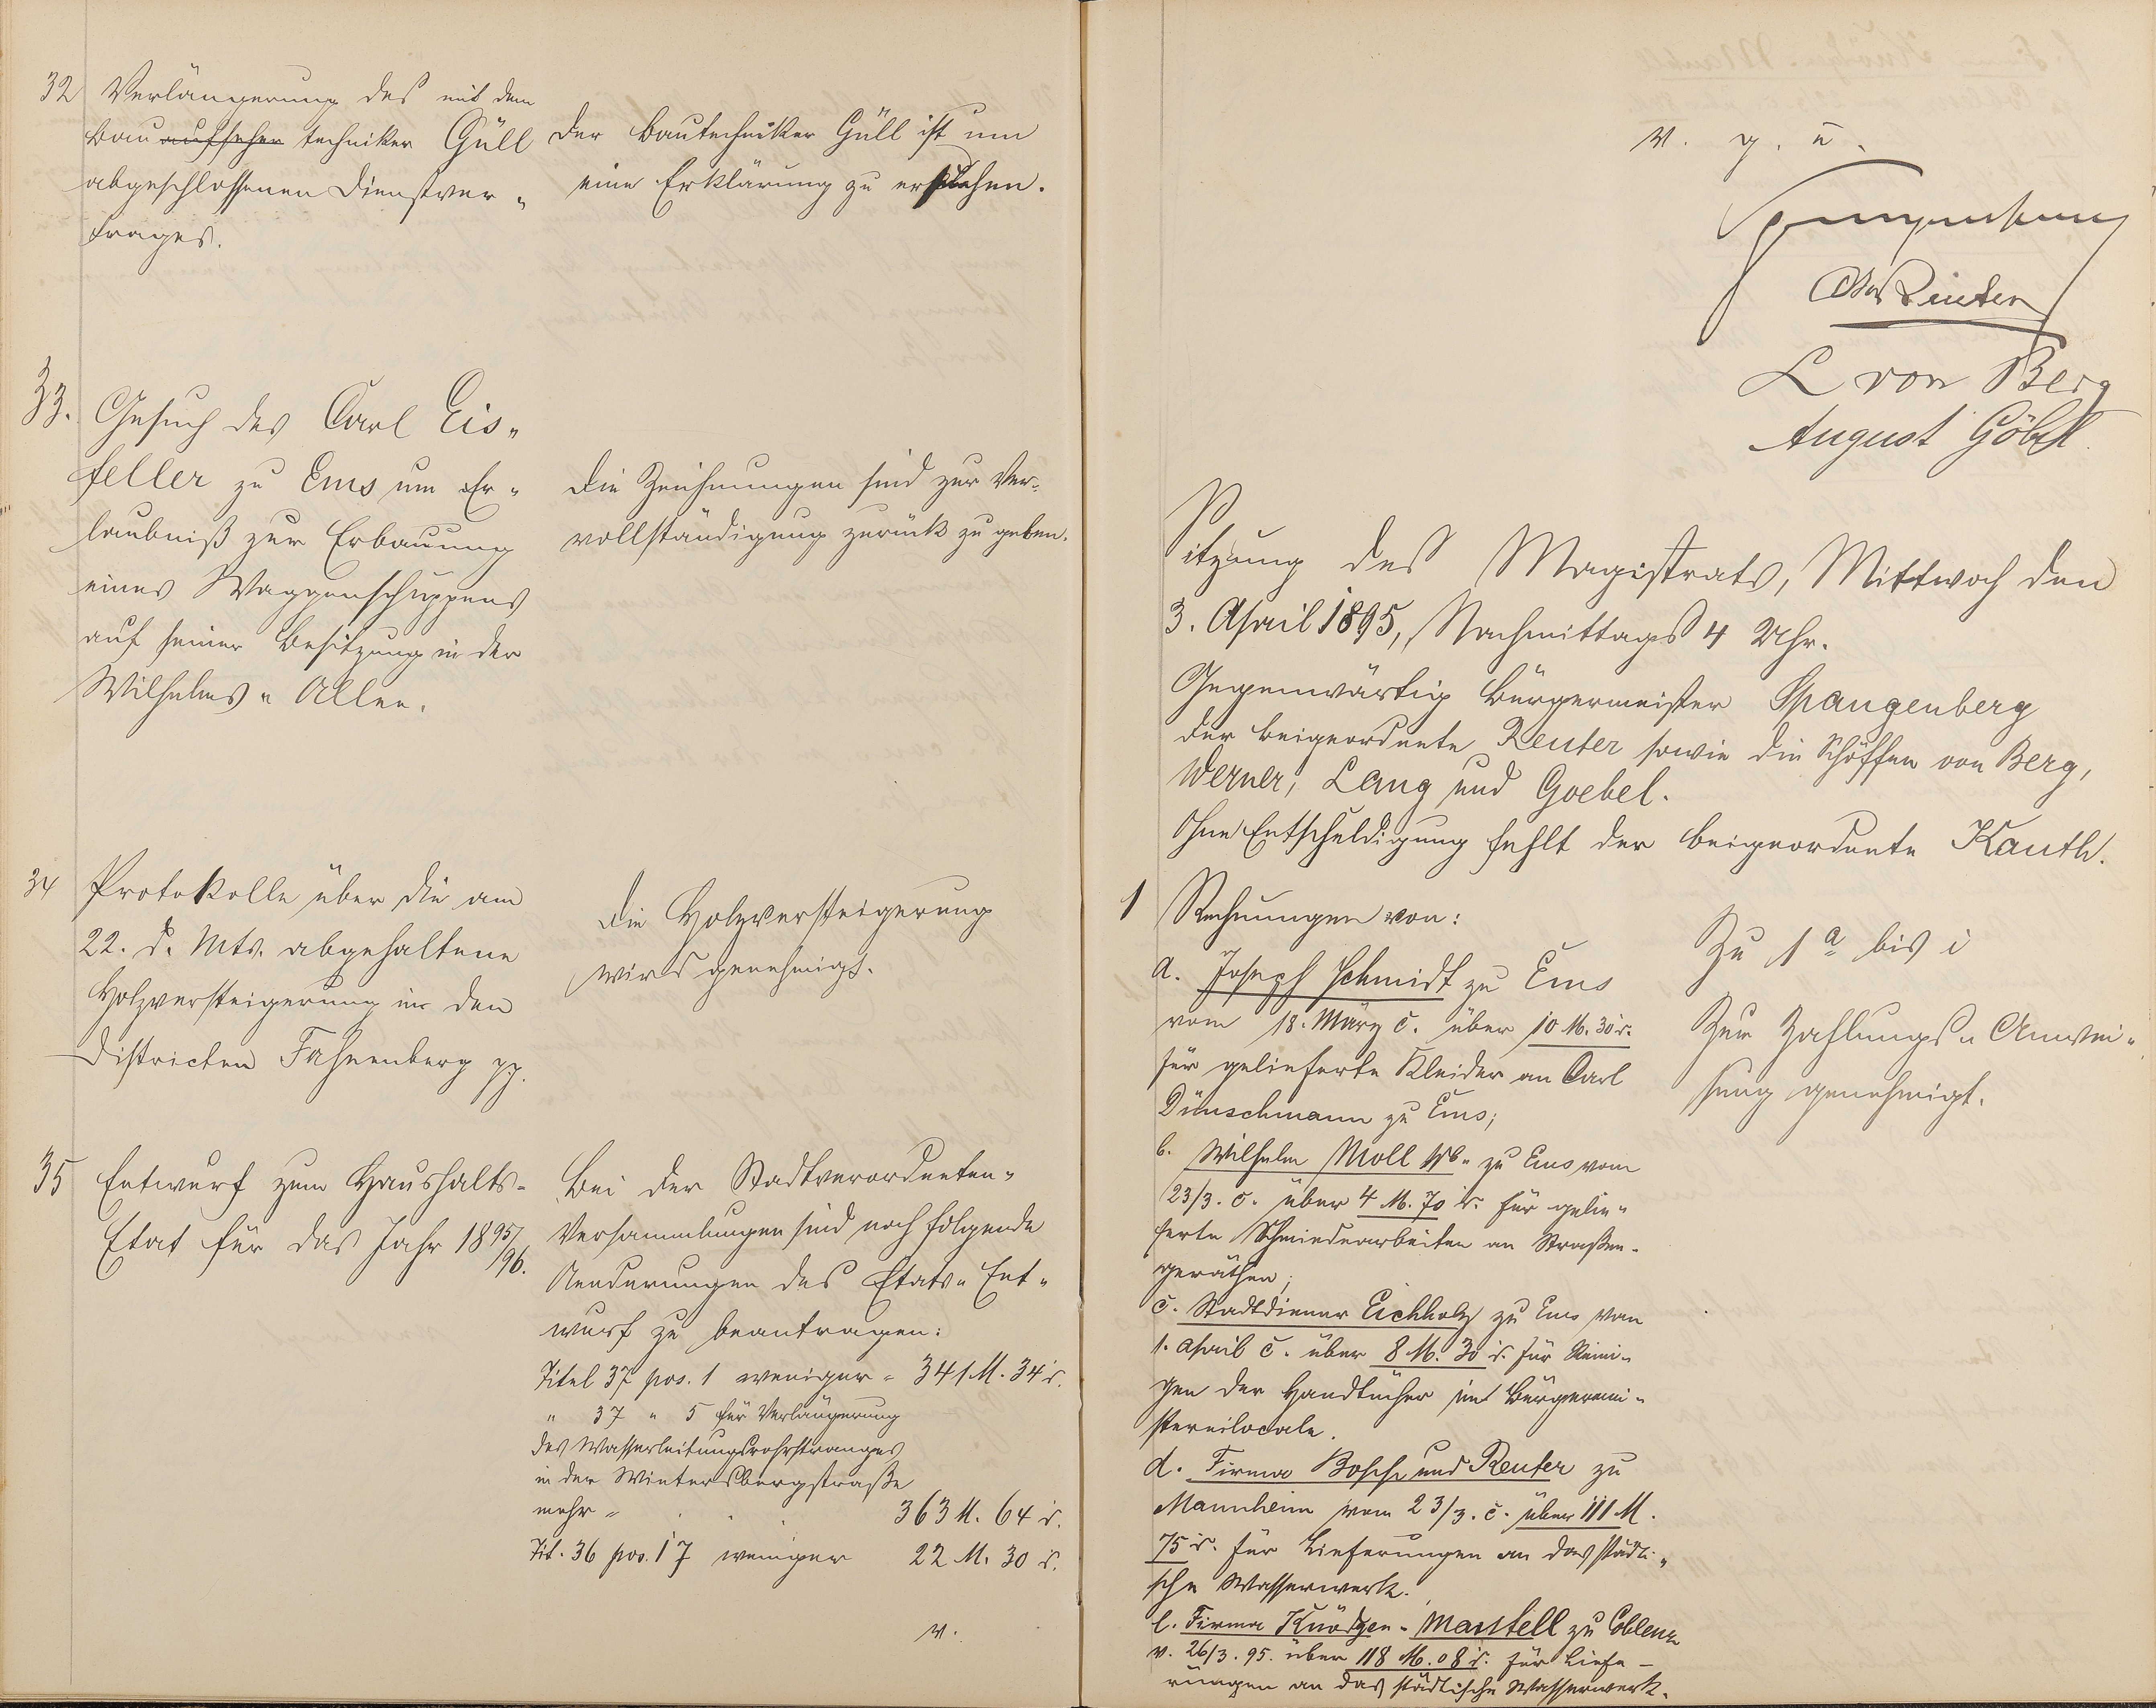 32 Verlängerung des mit dem
Bauaufseher techniker Güll
abgeschlossenen Dienstver-
trages.
Der Bautechniker Güll ist um
eine Erklärung zu ersuchen.
33. Gesuch des Carl Eis-
feller zu Ems um Er-
laubniß zur Erbauung
eines Waggenschuppens
auf seiner Besitzung in der
Wilhelms-Allee.
Die Zeichnungen sind zur Ver-
vollständigung zurück zu geben.
34 Protokolle über die am
22. d. Mts. abgehaltene
Holzversteigerung in den
Districten Fahnenberg pp.
Die Holzversteigerung
wird genehmigt.
35 Entwurf zum Haushalts-
Etat für das Jahr 1895/
96.
Bei der Stadtverordneten-
Versammlungen sind noch folgende
Aenderungen des Etats-Ent-
wurf zu beantragen:
Titel 37 pos. 1 weniger = 341 M. 34 d.
" 37 " 5 für Verlängerung
des Wasserleitungsrohrstranges
in der Wintersbergstraße
mehr = 363 M. 64 d.
Tit. 36 pos. 17 weniger 22 M. 30 d.
v.
v. g. u.
Spangenberg
Reuter
L von Berg
August Göbel
Sitzung des Magistrats, Mittwoch den
3. April 1895, Nachmittags 4 Uhr.
Gegenwärtig Bürgermeister Spangenberg
der Beigeordnete Reuter sowie die Schöffen von Berg,
Werner, Lang und Goebel.
Ohne Entschuldigung fehlt der Beigeordnete Kauth.
1 Rechnungen von:
a. Joseph Schmidt zu Ems
vom 18. März c. über 10 M. 30 d.
für gelieferte Kleider an Carl
Dünschmann zu Ems;
b. Wilhelm Moll Wb. zu Ems vom
23/3. c. über 4 M. 70 d. für gelie-
ferte Schmiedearbeiten an Straßen-
geräthen;
c. Stadtdiener Eichholz zu Ems vom
1. April c. über 8 M. 30 d. für Reini-
gen der Handtücher im Bürgermei-
stereilocale.
d. Firma Bopp und Reuter zu
Mannheim vom 23/3. c. über 111 M.
75 d. für Lieferungen an das städti-
sche Wasserwerk.
e. Firma Knödgen-Mantell zu Coblenz
v. 26/3. 95. über 118 M. 08 d. für Liefe-
rungen an das städtische Wasserwerk.
Zu 1 a bis i
Zur Zahlungs-Anwei-
sung genehmigt.